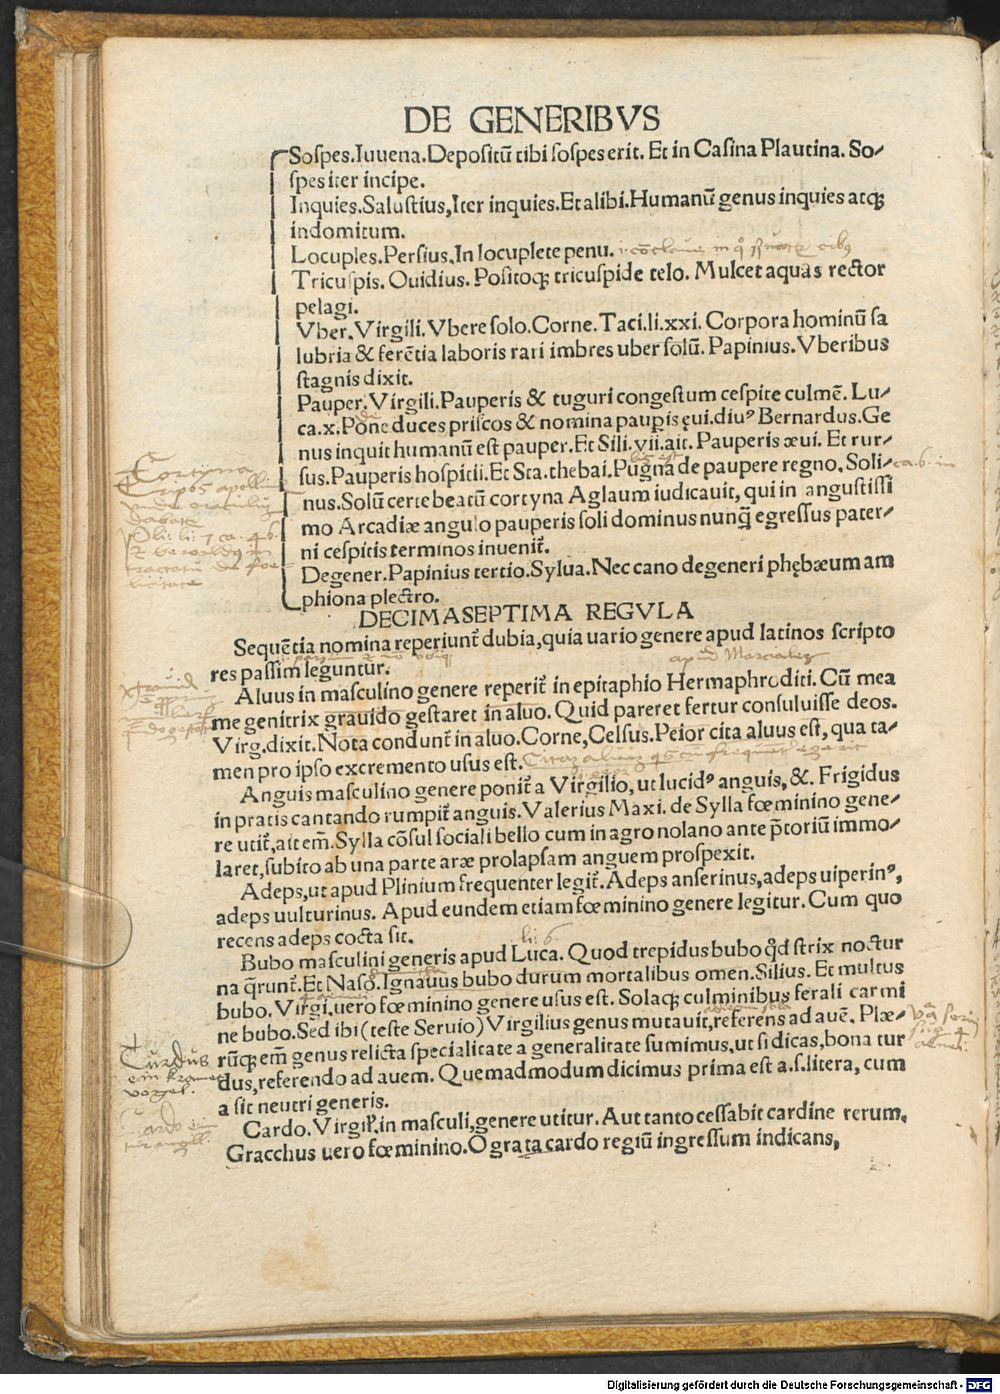 DE GENERIBVS
Sospes.Iuuena.Depositū tibi sospes erit. Et in Casina Plautina. So-
spes iter incipe.
Inquies.Salustius,Iter inquies.Et alibi.Humanū genus inquies atqȝ
indomitum.
Locuples.Persius.In locuplete penu.
Tricuspis. Ouidius. Positoqȝ tricuspide telo. Mulcet aquas rector
pelagi.
Vber.Virgili.Vbere solo.Corne.Taci.li.xxi.Corpora hominū sa
lubria & ferētia laboris rari imbres uber solū. Papinius.Vberibus
stagnis dixit.
Pauper.Virgili.Pauperis & tuguri congestum cespite culmē. Lu-
ca.x.Pone duces priscos & nomina paupis ęui.diuꝰ Bernardus.Ge
nus inquit humanū est pauper.Et Sili.vii.ait. Pauperis æui. Et rur-
sus.Pauperis hospitii.Et Sta.thebai.Pugna de paupere regno. Soli- ca.6. in
nus.Solū certe beatū cortyna Aglaum iudicauit, qui in angustissi
mo Arcadiæ angulo pauperis soli dominus nunq̄ egressus pater-
ni cespitis terminos inuenit̄.
Degener.Papinius tertio.Sylua.Nec cano degeneri phębæum am
phiona plectro.
DECIMASEPTIMA REGVLA
Sequētia nomina reperiunt̄ dubia,quia uario genere apud latinos scripto
res passim leguntur.
Aluus in masculino genere reperit̄ in epitaphio Hermaphroditi. Cū mea
me genitrix grauido gestaret in aluo. Quid pareret fertur consuluisse deos.
Virg.dixit.Nota condunt̄ in aluo.Corne,Celsus.Peior cita aluus est, qua ta-
men pro ipso excremento usus est.
Anguis masculino genere ponit̄ a Virgilio, ut lucidꝰ anguis, &. Frigidus
in pratis cantando rumpit̄ anguis.Valerius Maxi. de Sylla fœminino gene-
re utit̄,ait em̄.Sylla cōsul sociali bello cum in agro nolano ante p̄toriū immo-
laret,subito ab una parte aræ prolapsam anguem prospexit.
Adeps,ut apud Plinium frequenter legit̄.Adeps anserinus,adeps uiperinꝰ,
adeps uulturinus. Apud eundem etiam fœminino genere legitur.Cum quo
recens adeps cocta sit.
li: 6
Bubo masculini generis apud Luca. Quod trepidus bubo q̄d strix noctur
na q̄runt̄.Et Naso.Ignauus bubo durum mortalibus omen.Silius. Et multus
bubo. Virgi.uero fœminino genere usus est. Solaqȝ culminibus ferali carmi
ne bubo.Sed ibi (teste Seruio) Virgilius genus mutauit,referens ad auē. Plæ-
rūqȝ em̄ genus relicta specialitate a generalitate sumimus,ut si dicas,bona tur
dus,referendo ad auem. Quemadmodum dicimus prima est a.s.litera, cum
a sit neutri generis.
Turdus
ein
vogel.
Cardo. Virgil̄.in masculi,genere utitur. Aut tanto cessabit cardine rerum.
Gracchus uero fœminino.O grata cardo regiū ingressum indicans,
Digitalisierung gefördert durch die Deutsche Forschungsgemeinschaft - DFG